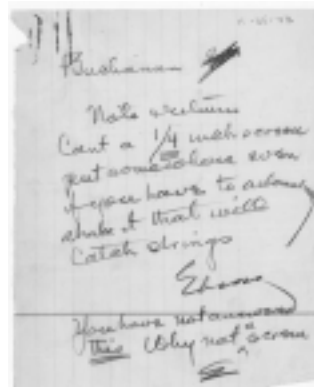 Buchanan
Note return
Cant a 1/4 inch screen
put some where even
if you have to
shake it that will
Catch strings
Edison
You have not answered
this Why not screen